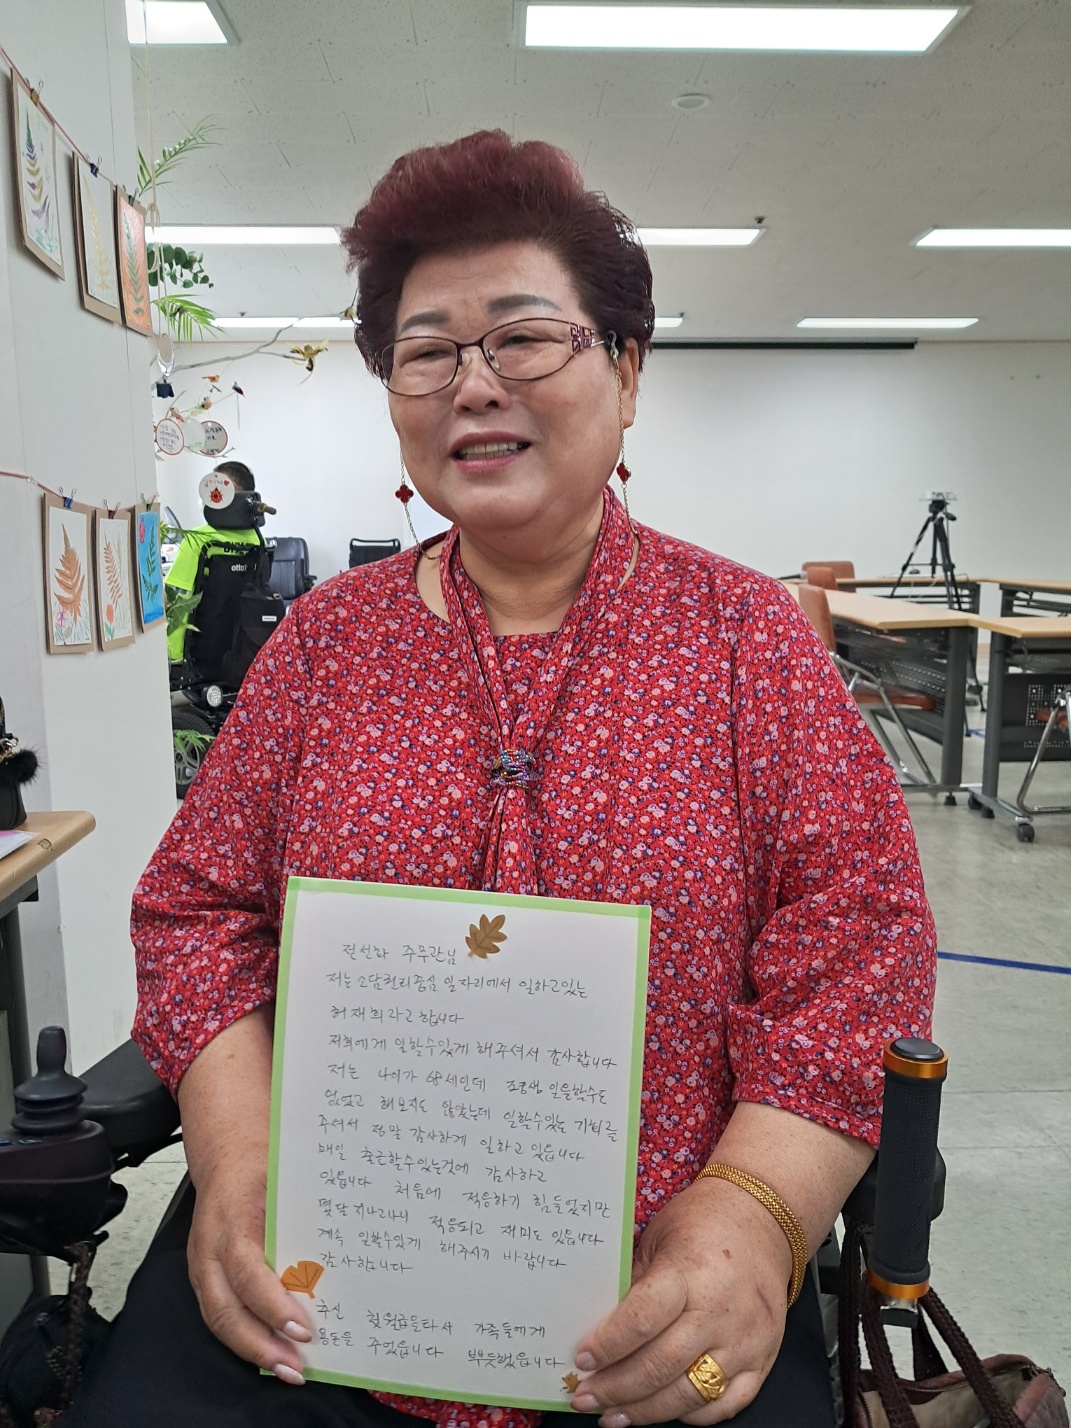 전선화 주무관님
저는 소담권리중심 일자리에서 일하고있는
허재희라고 합니다
저희에게 일할수있게 해주셔서 감사합니다
저는 나이가 68세인데 평생 일을할수도
없었고 해보지도 않았는데 일할수있는 기회를
주셔서 정말 감사하게 일하고 있읍니다
매일 출근할수있는것에 감사하고
있읍니다 처음에 적응하기 힘들었지만
몇달 지나고나니 적응되고 재미도 있읍니다
계속 일할수있게 해주시기 바랍니다
감사합니다
추신 첫월급을타서 가족들에게
용돈을 주었읍니다 뿌듯했읍니다
otto